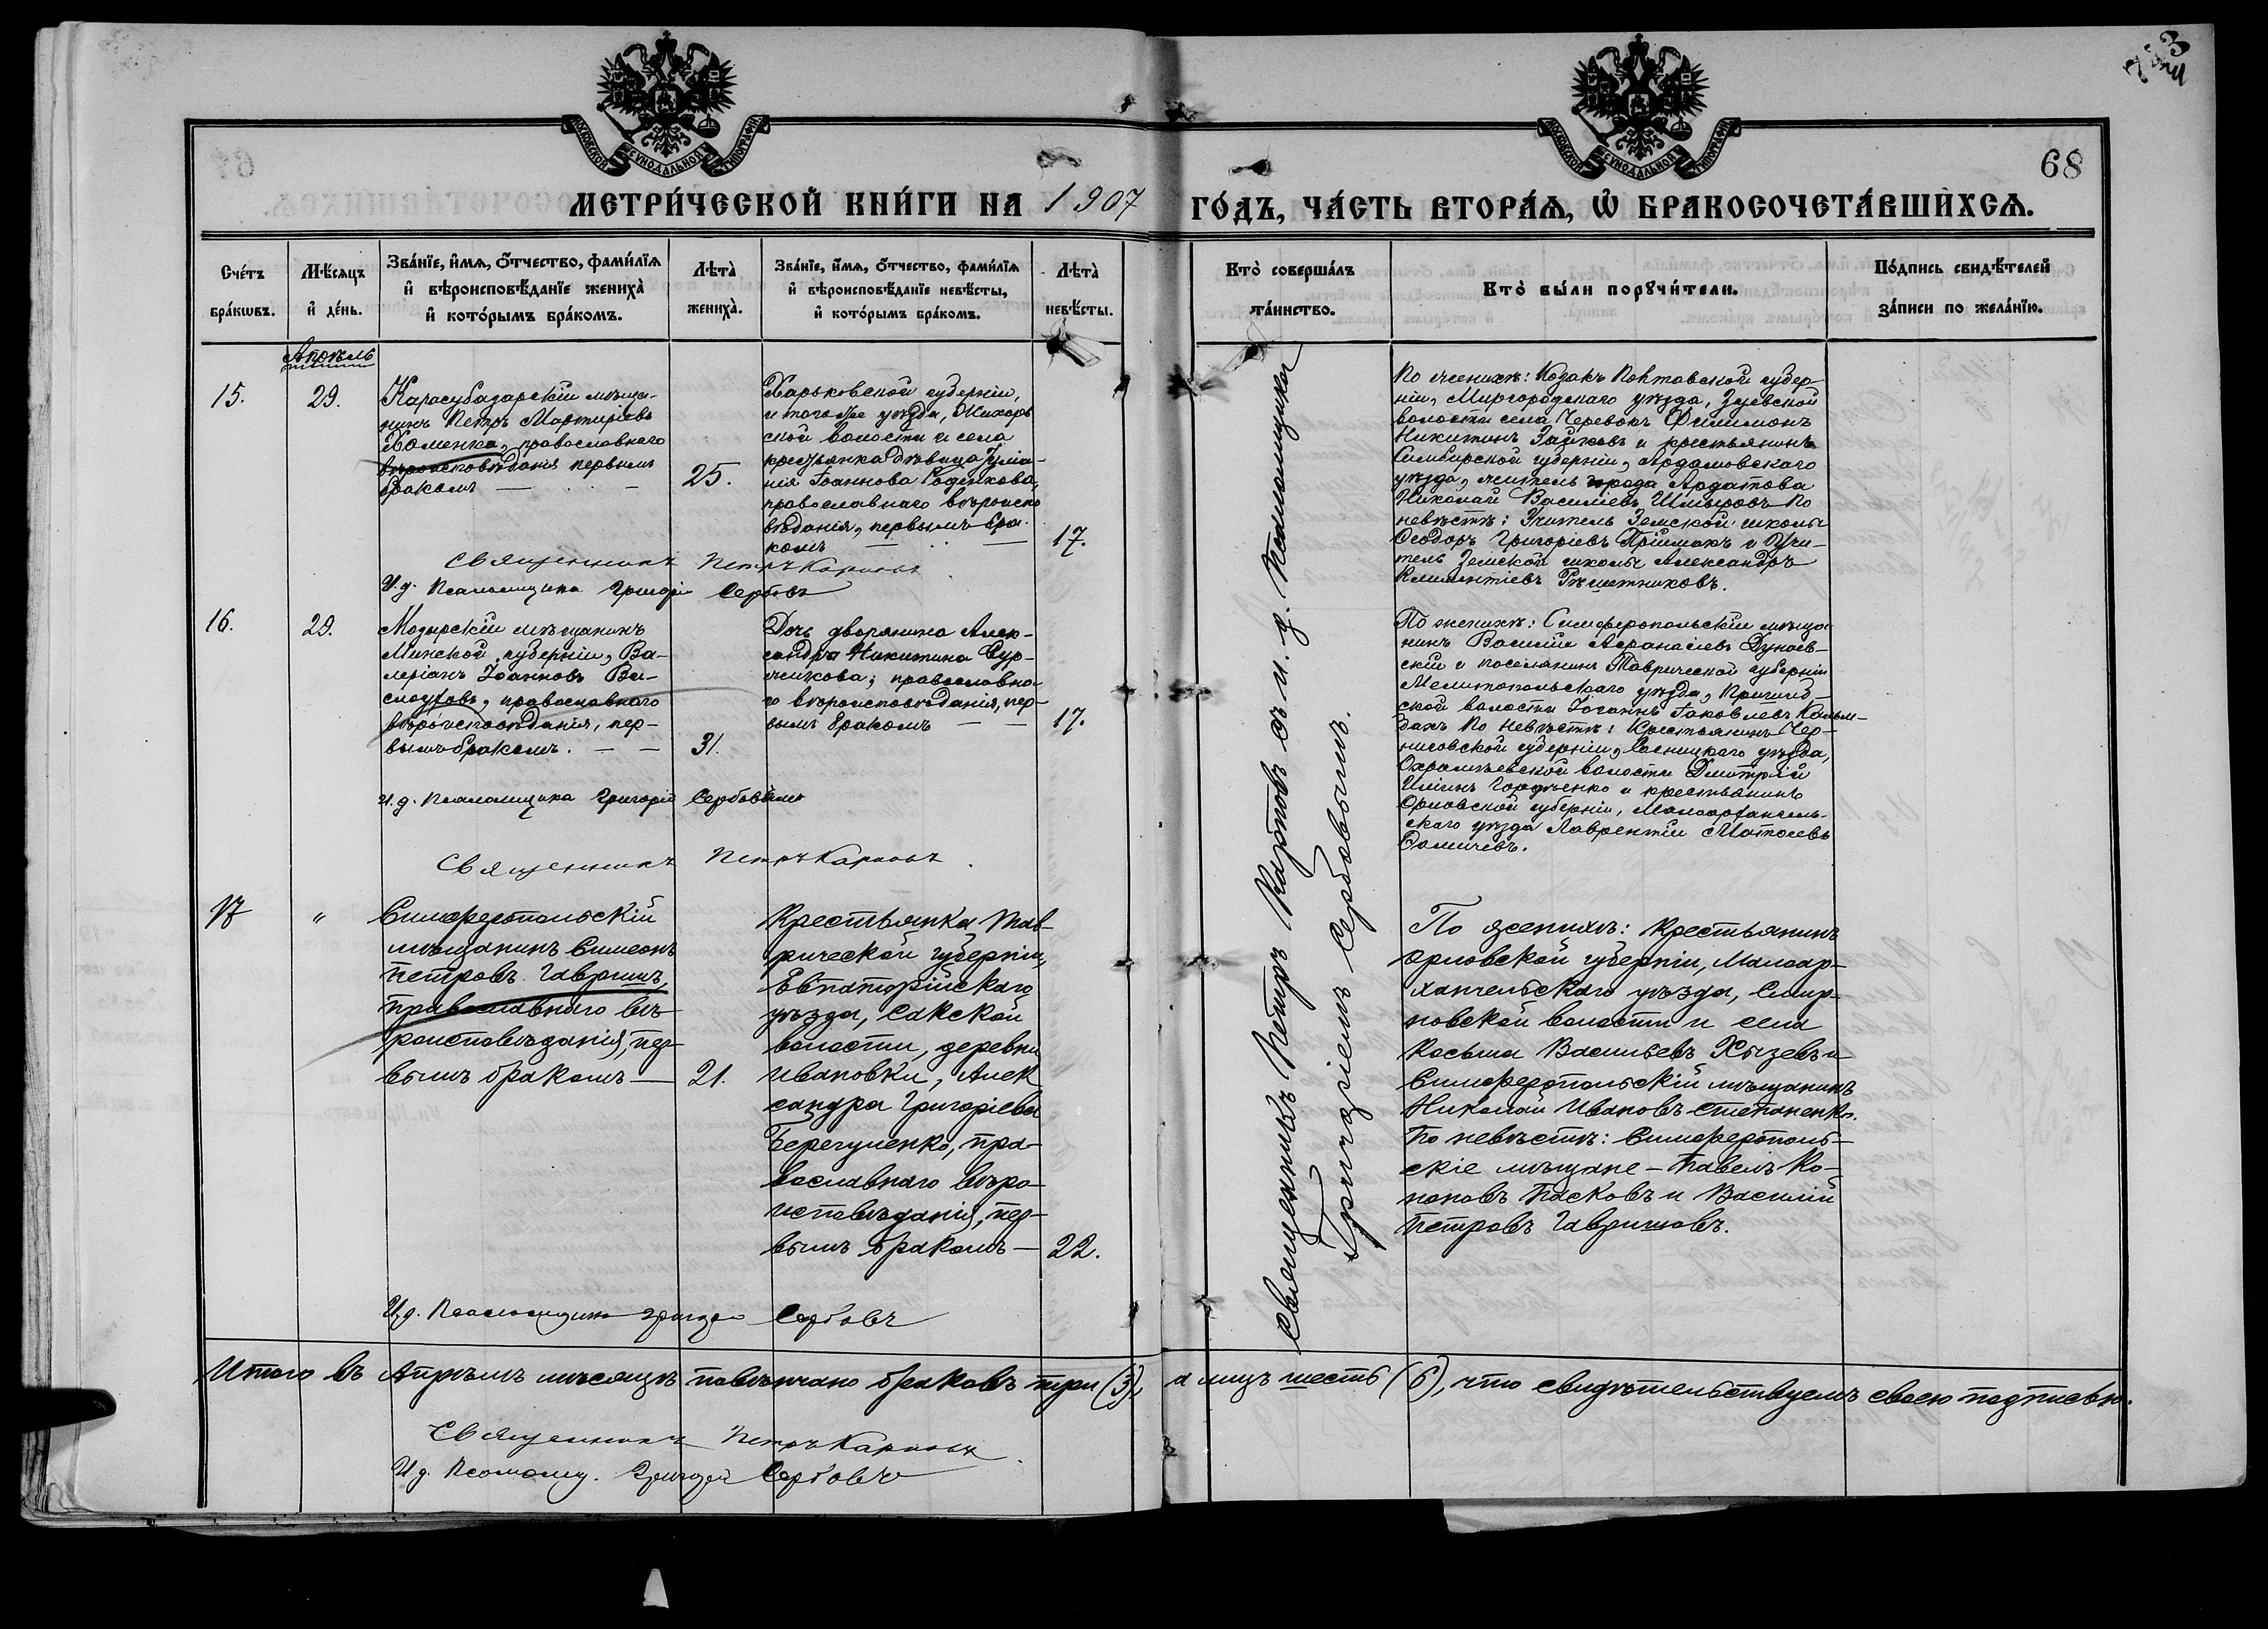 743
68
МОСКОВСКОЙ СѴНОДАЛЬНОЙ ТИПОГРАФІИ
МОСКОВСКОЙ СѴНОДАЛЬНОЙ ТИПОГРАФІИ
МЕТРИ́ЧЕСКОЙ КНИ́ГИ НА 1907 ГО́ДЪ, ЧА́СТЬ ВТОРА́Ѧ, Ѽ БРАКОСОЧЕТА́ВШИХСѦ.
Сче́тъ
бра́кѡвъ.
Мѣ́сяцъ
и҆ де́нь.
Зва́нїе, и҆́мѧ, ѻ҆́тчество, фами́лїѧ
и҆ вѣроисповѣ́данїе жениха̀
и҆ кото́рымъ бра́комъ.
Лѣта̀
жениха̀.
Зва́нїе, и҆́мѧ, ѻ҆́тчество, фами́лїѧ
и҆ вѣроисповѣ́данїе невѣ́сты,
и҆ кото́рымъ бра́комъ.
Лѣта̀
невѣ́сты.
Кто̀ соверша́лъ
та́инство.
Кто̀ бы́ли порꙋчи́тели.
По́дпись свидѣ́телей
за́писи по жела́нїю.
Апрѣль
15.
29.
Карасубазарскій мѣща-
нинъ Петръ Мартиріевъ
Хоменко, православнаго
вѣроисповѣданія первымъ
бракомъ
25.
Харьковской губерніи,
и того же уѣзда, Жихор-
ской волости и села
крестьянка дѣвица Іулiа-
нія Іоаннова
православнаго вѣроиспо
вѣданія, первымъ бра-
комъ
17.
По женихѣ: Козакъ Полтавской губер-
ніи, Миргородскаго уѣзда, Зуевской
волости села Черевокъ Филимонъ
Никитинъ Зайковъ и крестьянинъ
Симбирской губерніи, Ардатовскаго
уѣзда, житель города Ардатова
Николай Василіевъ Шмыровъ По
невѣстѣ: Учитель Земской школы
Ѳеодоръ Григоріевъ Пріймакъ и Учи-
тель Земской школы Александръ
Климентіевъ Рѣшетниковъ.
Священникъ Петръ Карповъ
И. д. Псаломщика Григорій Сербовъ
16.
29.
Мозырскій мѣщанинъ
Минской губерніи, Ва-
леріанъ Іоанновъ Ва-
православнаго
вѣроисповѣданія, пер-
вымъ бракомъ.
31.
Дочь дворянина Алек-
сандра Никитина
православна-
го вѣроисповѣданія, пер-
вымъ бракомъ
17.
По женихѣ: Симферопольскій мѣща-
нинъ Василій Аѳанасіевъ Дунаев-
скій и поселянинъ Таврической губерніи
Мелитопольскаго уѣзда, Пришиб-
ской волости Іоганнъ Іаковлевъ
По невѣстѣ: Крестьянинъ Чер-
ниговской губерніи, Сосницкаго уѣзда,
Охрамѣевской волости Дмитрій
Ильинъ Гордѣенко и крестьянинъ
Орловской губерніи, Малоархангель-
скаго уѣзда Лаврентій Матѳіевъ
Ѳомичевъ.
И. д. Псаломщика Григорій Сербовъ
Священникъ Петръ Карповъ
17
"
Симферопольскій
мѣщанинъ Симеонъ
Петровъ Гавришъ,
православнаго вѣ-
роисповѣданія, пер-
вымъ бракомъ —
21.
Крестьянка Тав-
рической губерніи,
Евпаторійскаго
уѣзда, Сакской
волости, деревни
Ивановки, Алек
сандра Григоріева
Берегуленко, пра-
вославнаго вѣро
исповѣданія, пер-
вымъ бракомъ —
22.
По женихѣ: Крестьянинъ
Орловской губерніи, Малоар-
хангельскаго уѣзда, Смир-
новской волости и села
Косьма Васильевъ Хызевъ и
Симферопольскій мѣщанинъ
Николай Ивановъ Степаненко.
По невѣстѣ: Симферополь-
скіе мѣщане — Павелъ Ко-
ноновъ Пасковъ и Василій
Петровъ Гавришовъ.
И. д. Псаломщика Григорій Сербовъ
Священникъ Петръ Карповъ съ и. д. Псаломщика
Григоріемъ Сербовымъ.
Итого въ Апрѣлѣ мѣсяцѣ повѣнчано браковъ три (3), а лицъ шесть (6), что свидѣтельствуемъ своею подписью.
Священникъ Петръ Карповъ
И д. Псаломщ. Григорій Сербовъ